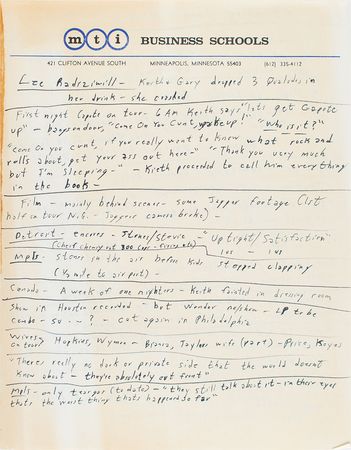 mti BUSINESS SCHOOLS
421 CLIFTON AVENUE SOUTH MINNEAPOLIS, MINNESOTA 55403 (612) 335-4112
Lee Radziwill - Keith & Gary dropped 3 Qualudes in
her drink - she crashed
First night Capote on tour - 6 AM Keith says "lets get Capote
up" - bangs on door, "Come On You Cunt, wake up!" "Who is it?"
"Come on you cunt, if you really want to know what rock and
rolls about, get your ass out here -" "Thank you very much
but I'm sleeping -" - Kieth proceeded to call him everything
in the book -
Film - mainly behind scenes - some Jagger footage
half on tour
Detroit - encores - Stones/Stevie - "Uptight/Satisfaction"
Mpls - Stones in the air before kids stopped clapping
(½ mile to air port) -
Canada - A week of one nighters - Keith fainted in dressing room
Show in Houston recorded - but Wonder nofshow - LP to be
combo - so - ? - cut again in Philadelphia
Wives on tour - Hopkins, Wyman - Bianca, Taylors wife (part) - Prices, Keyes
"There's really no dark or private side that the world doesn't
know about - they're absolutely out front"
Mpls - only tear gas (to date) - "they still talk about it - in their eyes
thats the worst thing thats happened so far"